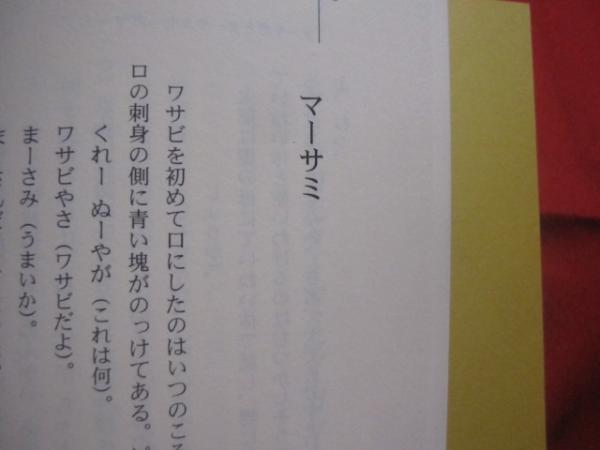 マーサミ
ワサビを初めて口にしたのはいつのころ
ロの刺身の側に青い塊がのっけてある。
くれー ぬーやが（これは何）。
ワサビやさ（ワサビだよ）。
まーさみ（うまいか）。